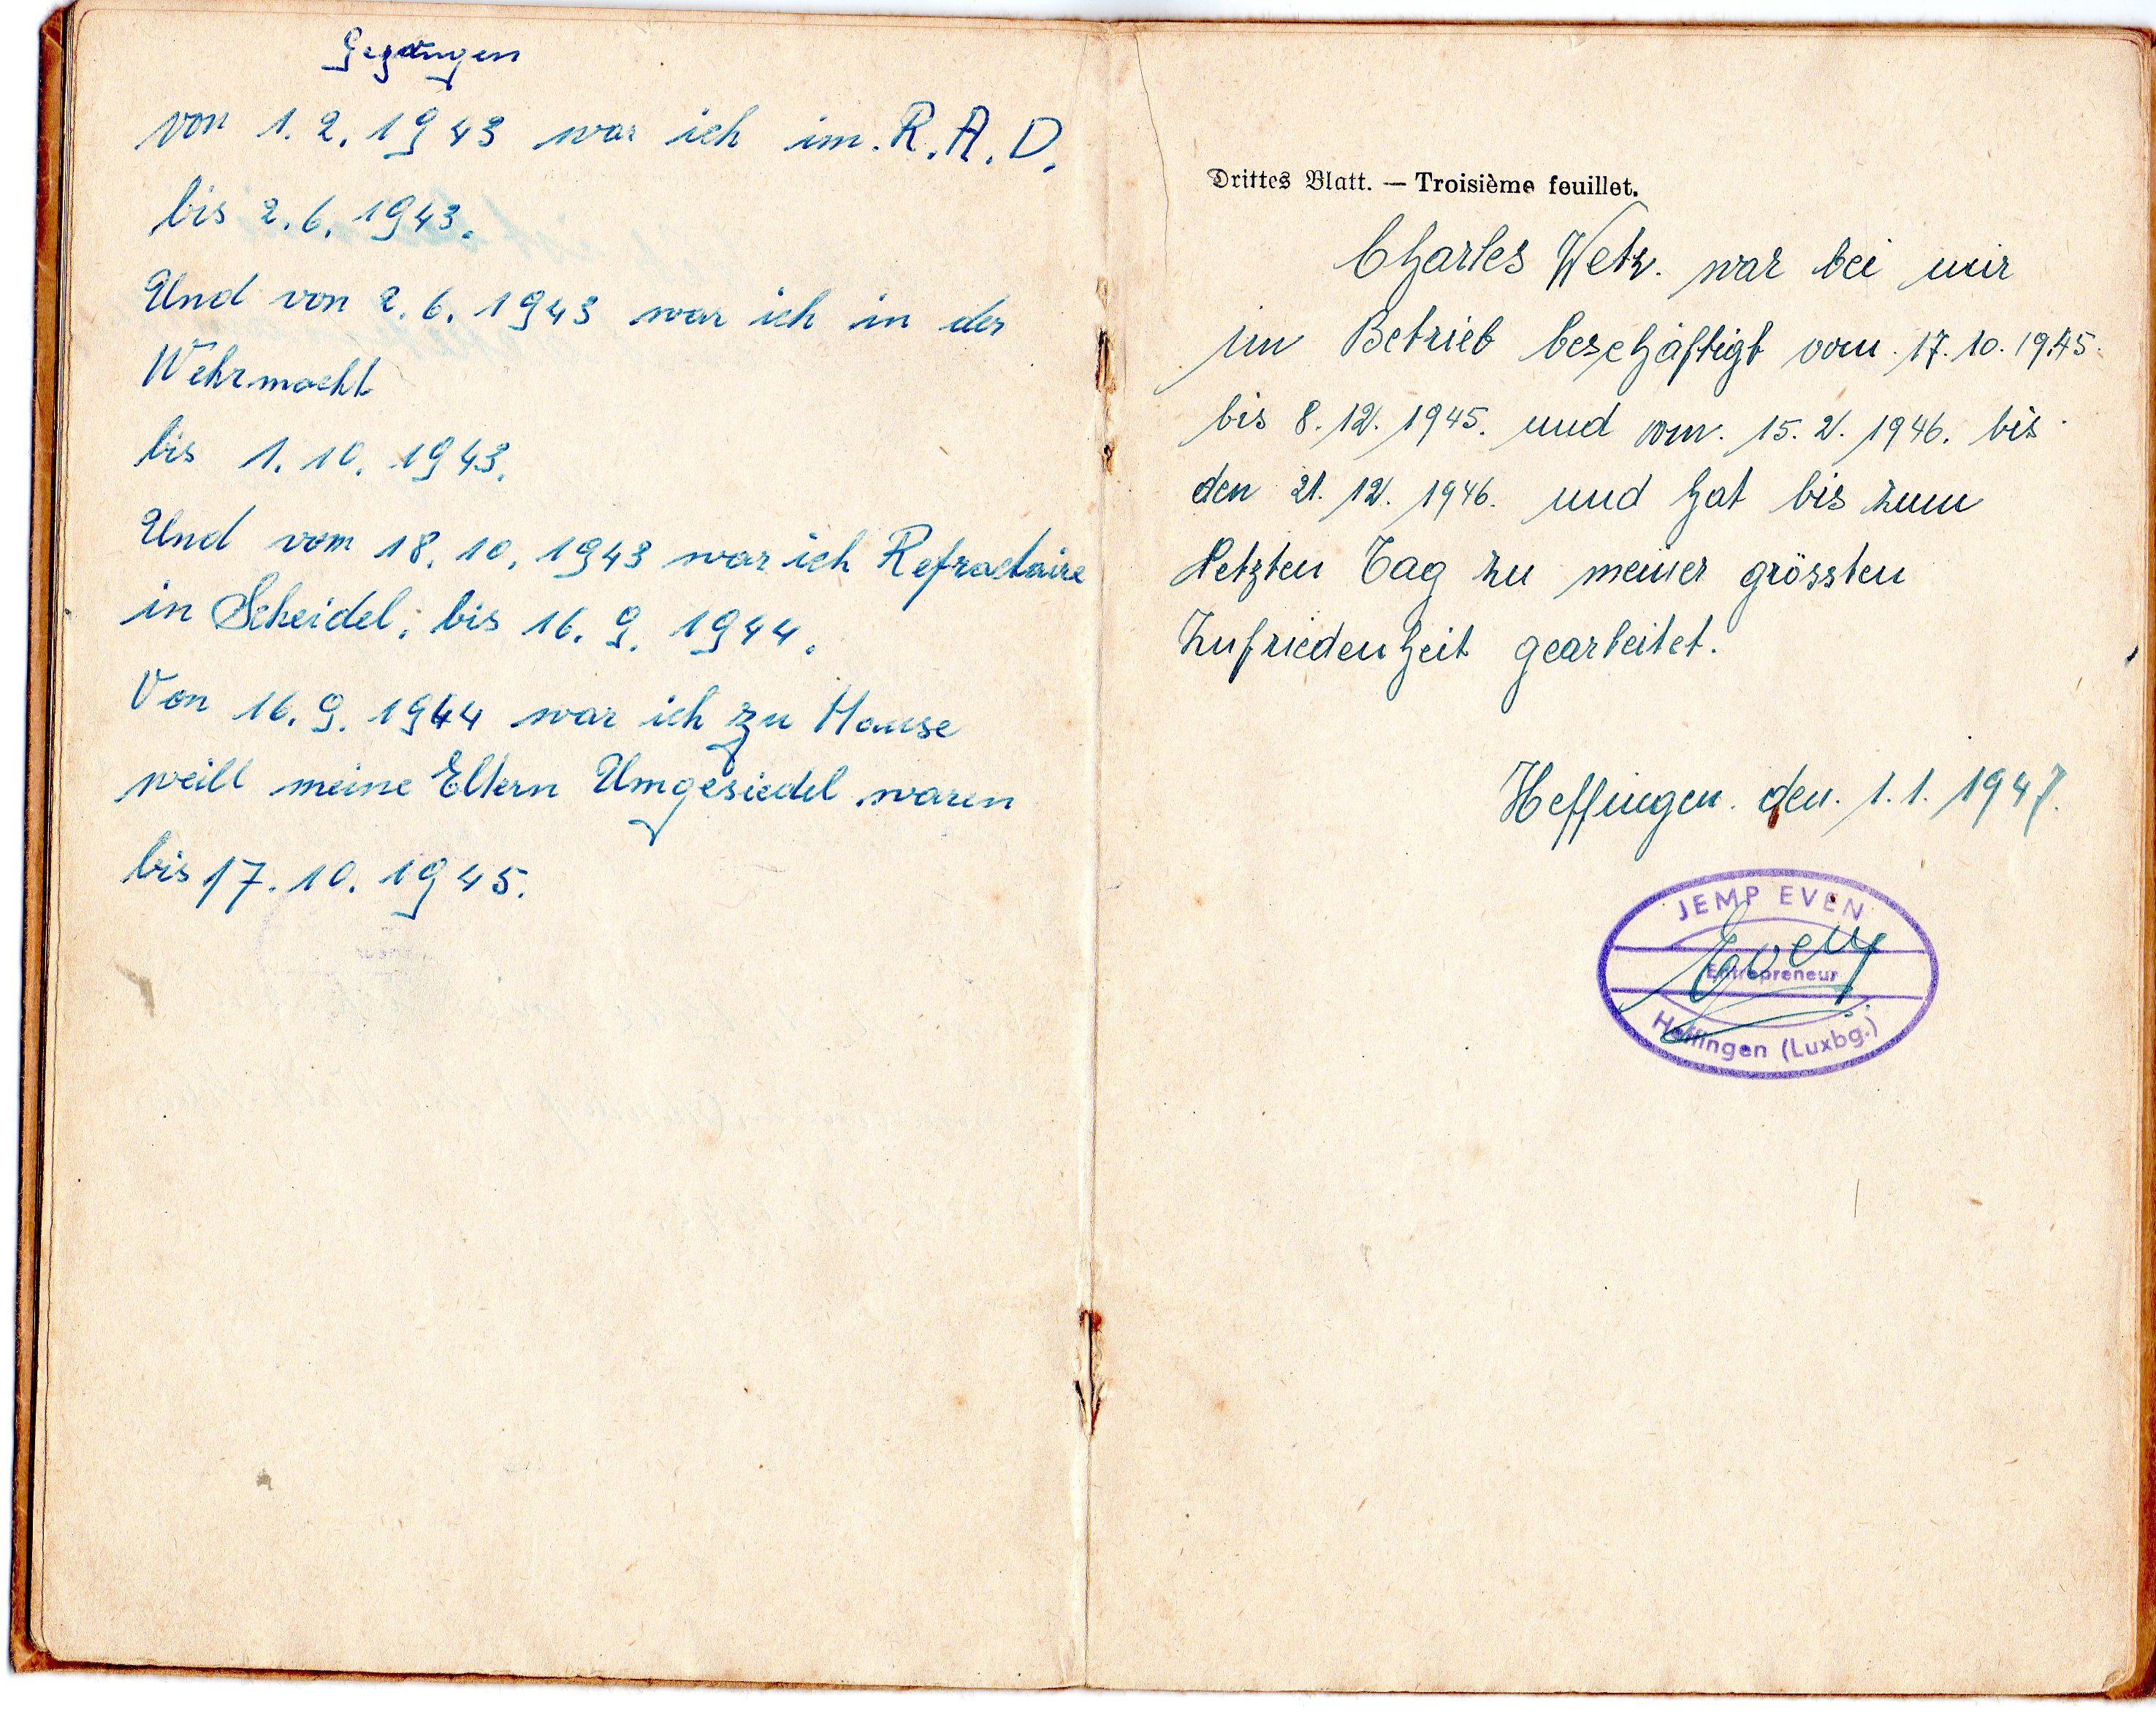 Gezwungen
von 1.2.1943 war ich im R.A.D.
bis 2.6.1943.
Und von 2.6.1943 war ich in der
Wehrmacht
bis 1.10.1943.
Und vom 18.10.1943 war ich Refractaire
in Scheidel, bis 16.9.1944.
Von 16.9.1944 war ich zu Hause
weill meine Eltern Umgesiedel waren
bis 17.10.1945.
Drittes Blatt. — Troisième feuillet.
Charles Wetz. war bei mir
im Betrieb beschäftigt vom 17.10.1945.
bis 8.12.1945. und vom 15.2.1946. bis
den 21.12.1946. und hat bis zum
letzten Tag zu meiner grössten
Zufriedenheit gearbeitet.
Heffingen. den. 1.1.1947.
JEMP EVEN
Even
Entrepreneur
Heffingen (Luxbg.)